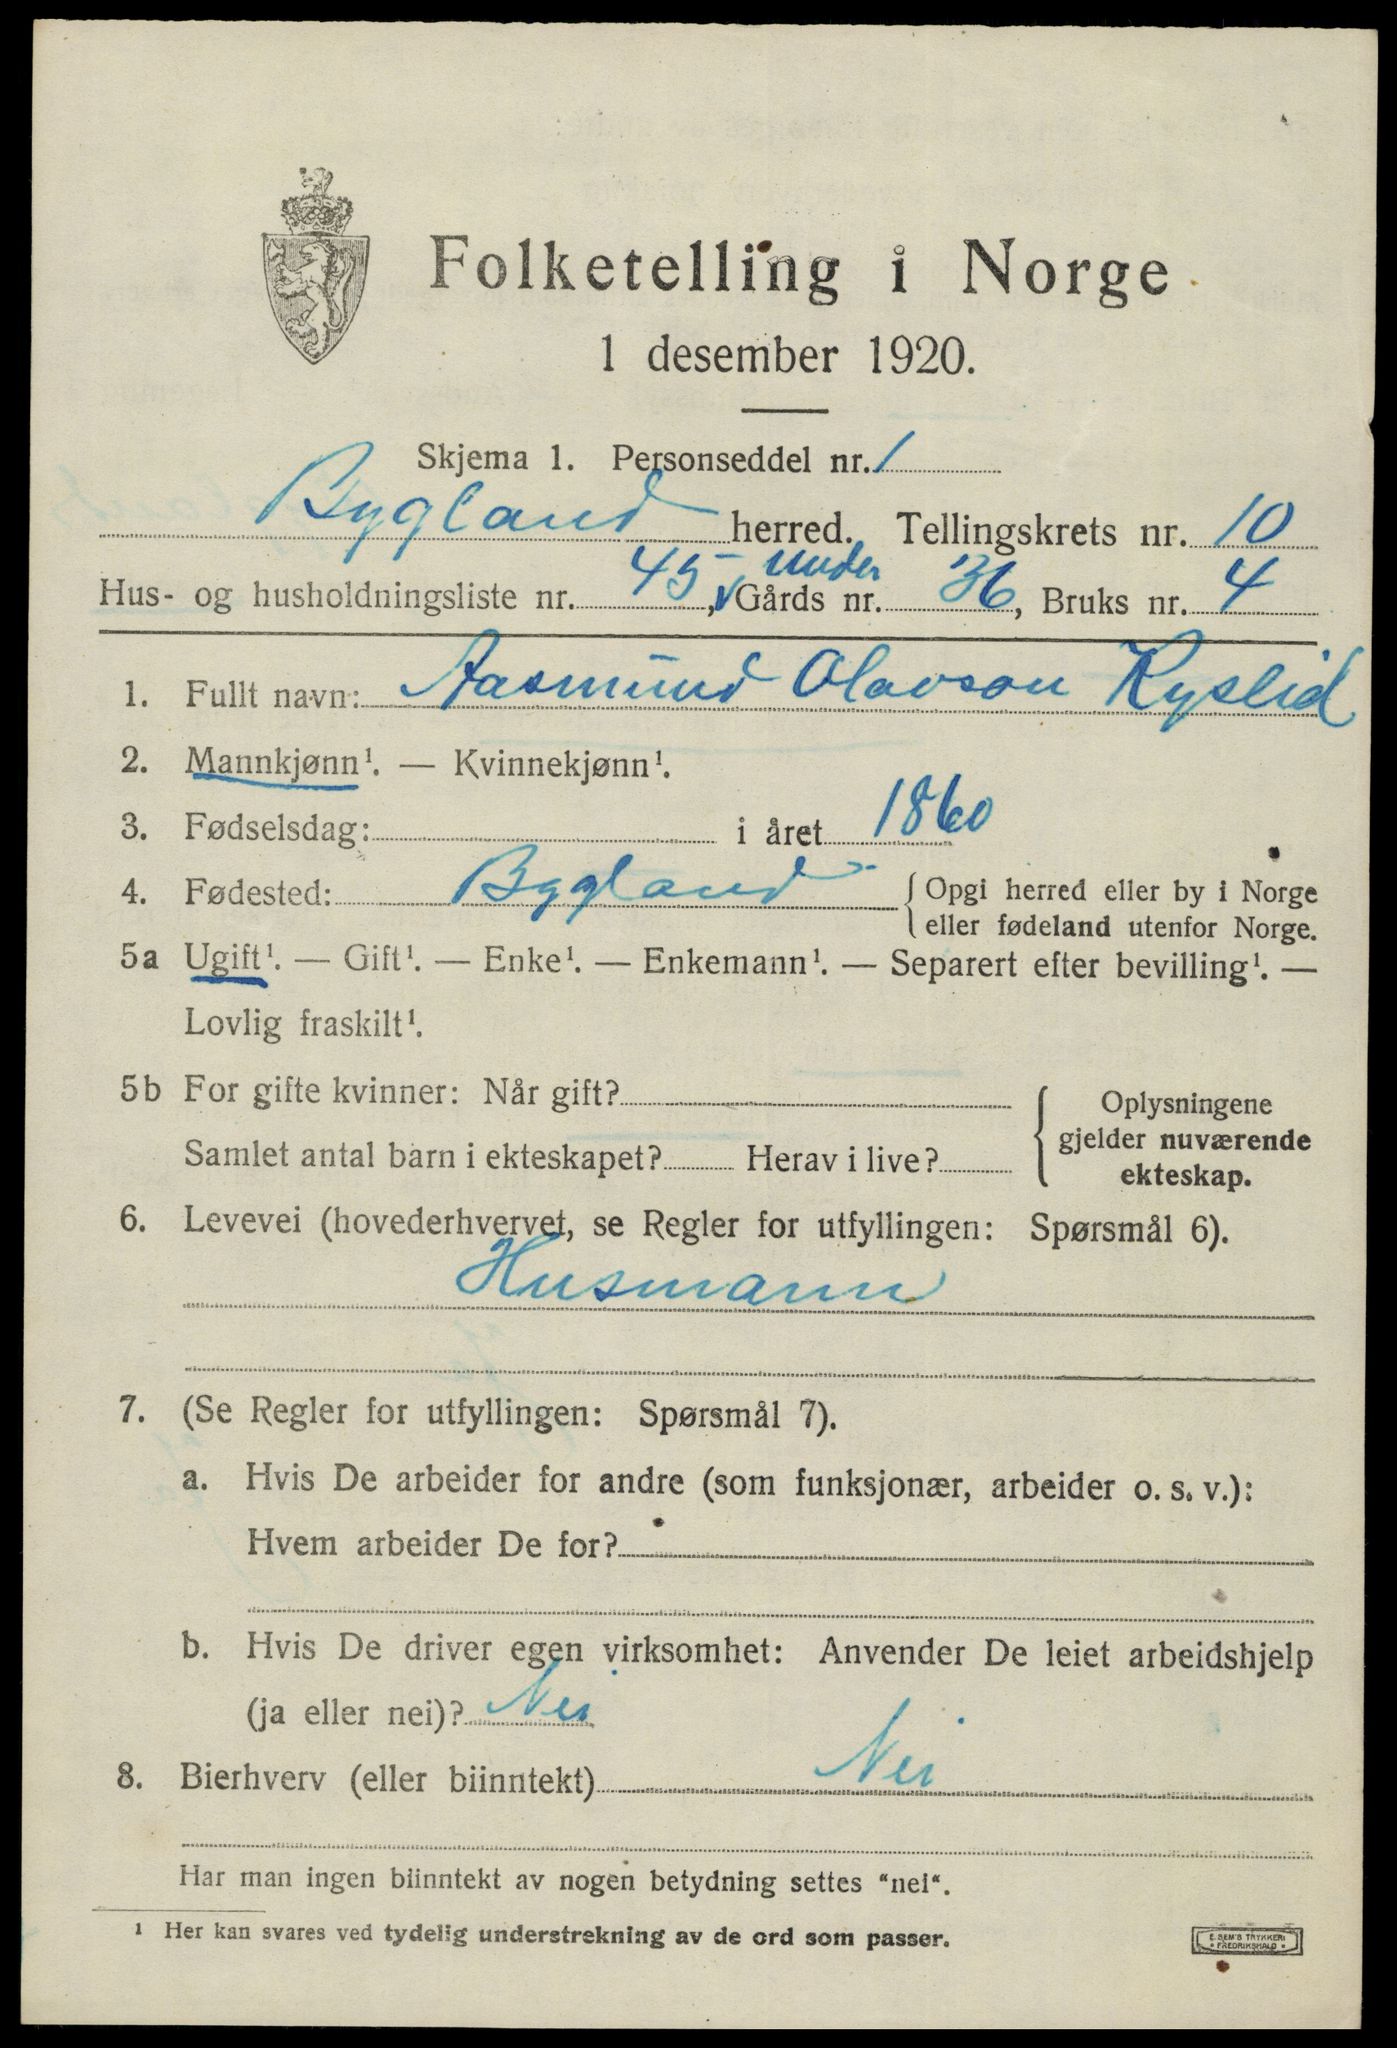 Folketelling i Norge
1 desember 1920.
Skjema 1. Personseddel nr. 1
Bygland herred. Tellingskrets nr. 10
under
Hus- og husholdningsliste nr. 45, Gårds nr. 36, Bruks nr. 4
1. Fullt navn: Aasmund Olavson Kyslid
2. Mannkjønn¹. — Kvinnekjønn¹.
3. Fødselsdag: i året 1860
4. Fødested: Bygland { Opgi herred eller by i Norge
eller fødeland utenfor Norge.
5a Ugift¹. — Gift¹. — Enke¹. — Enkemann¹. — Separert efter bevilling¹. —
Lovlig fraskilt¹.
5b For gifte kvinner: Når gift? { Oplysningene
gjelder nuværende
Samlet antal barn i ekteskapet? Herav i live? ekteskap.
6. Levevei (hovederhvervet, se Regler for utfyllingen: Spørsmål 6).
Husmann
7. (Se Regler for utfyllingen: Spørsmål 7).
a. Hvis De arbeider for andre (som funksjonær, arbeider o. s. v.):
Hvem arbeider De for?
b. Hvis De driver egen virksomhet: Anvender De leiet arbeidshjelp
(ja eller nei)? Nei
8. Bierhverv (eller biinntekt) Nei
Har man ingen biinntekt av nogen betydning settes "nei".
¹ Her kan svares ved tydelig understrekning av de ord som passer.
E. SEM'S TRYKKERI
• FREDRIKSHALD •